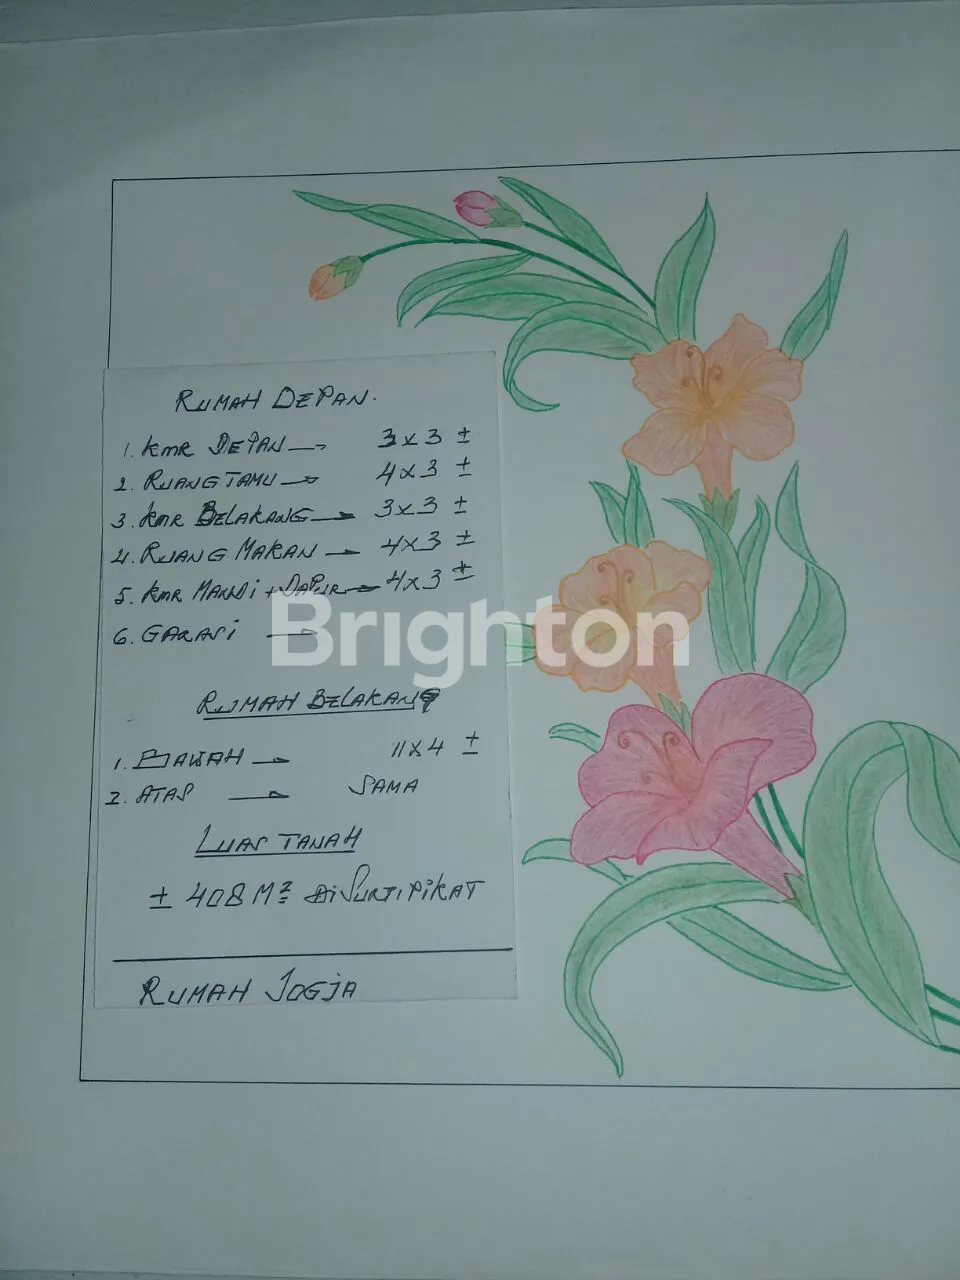 RUMAH DEPAN.
1. KMR DEPAN → 3x3 ±
2. RUANG TAMU → 4x3 ±
3. KMR BELAKANG → 3x3 ±
4. RUANG MAKAN → 4x3 ±
5. KMR MANDI + DAPUR → 4x3 ±
6. GARASI →
Brighton
RUMAH BELAKANG
1. BAWAH → 11x4 ±
2. ATAS → SAMA
LUAS TANAH
± 408 M² DISURTIPIKAT
RUMAH JOGJA